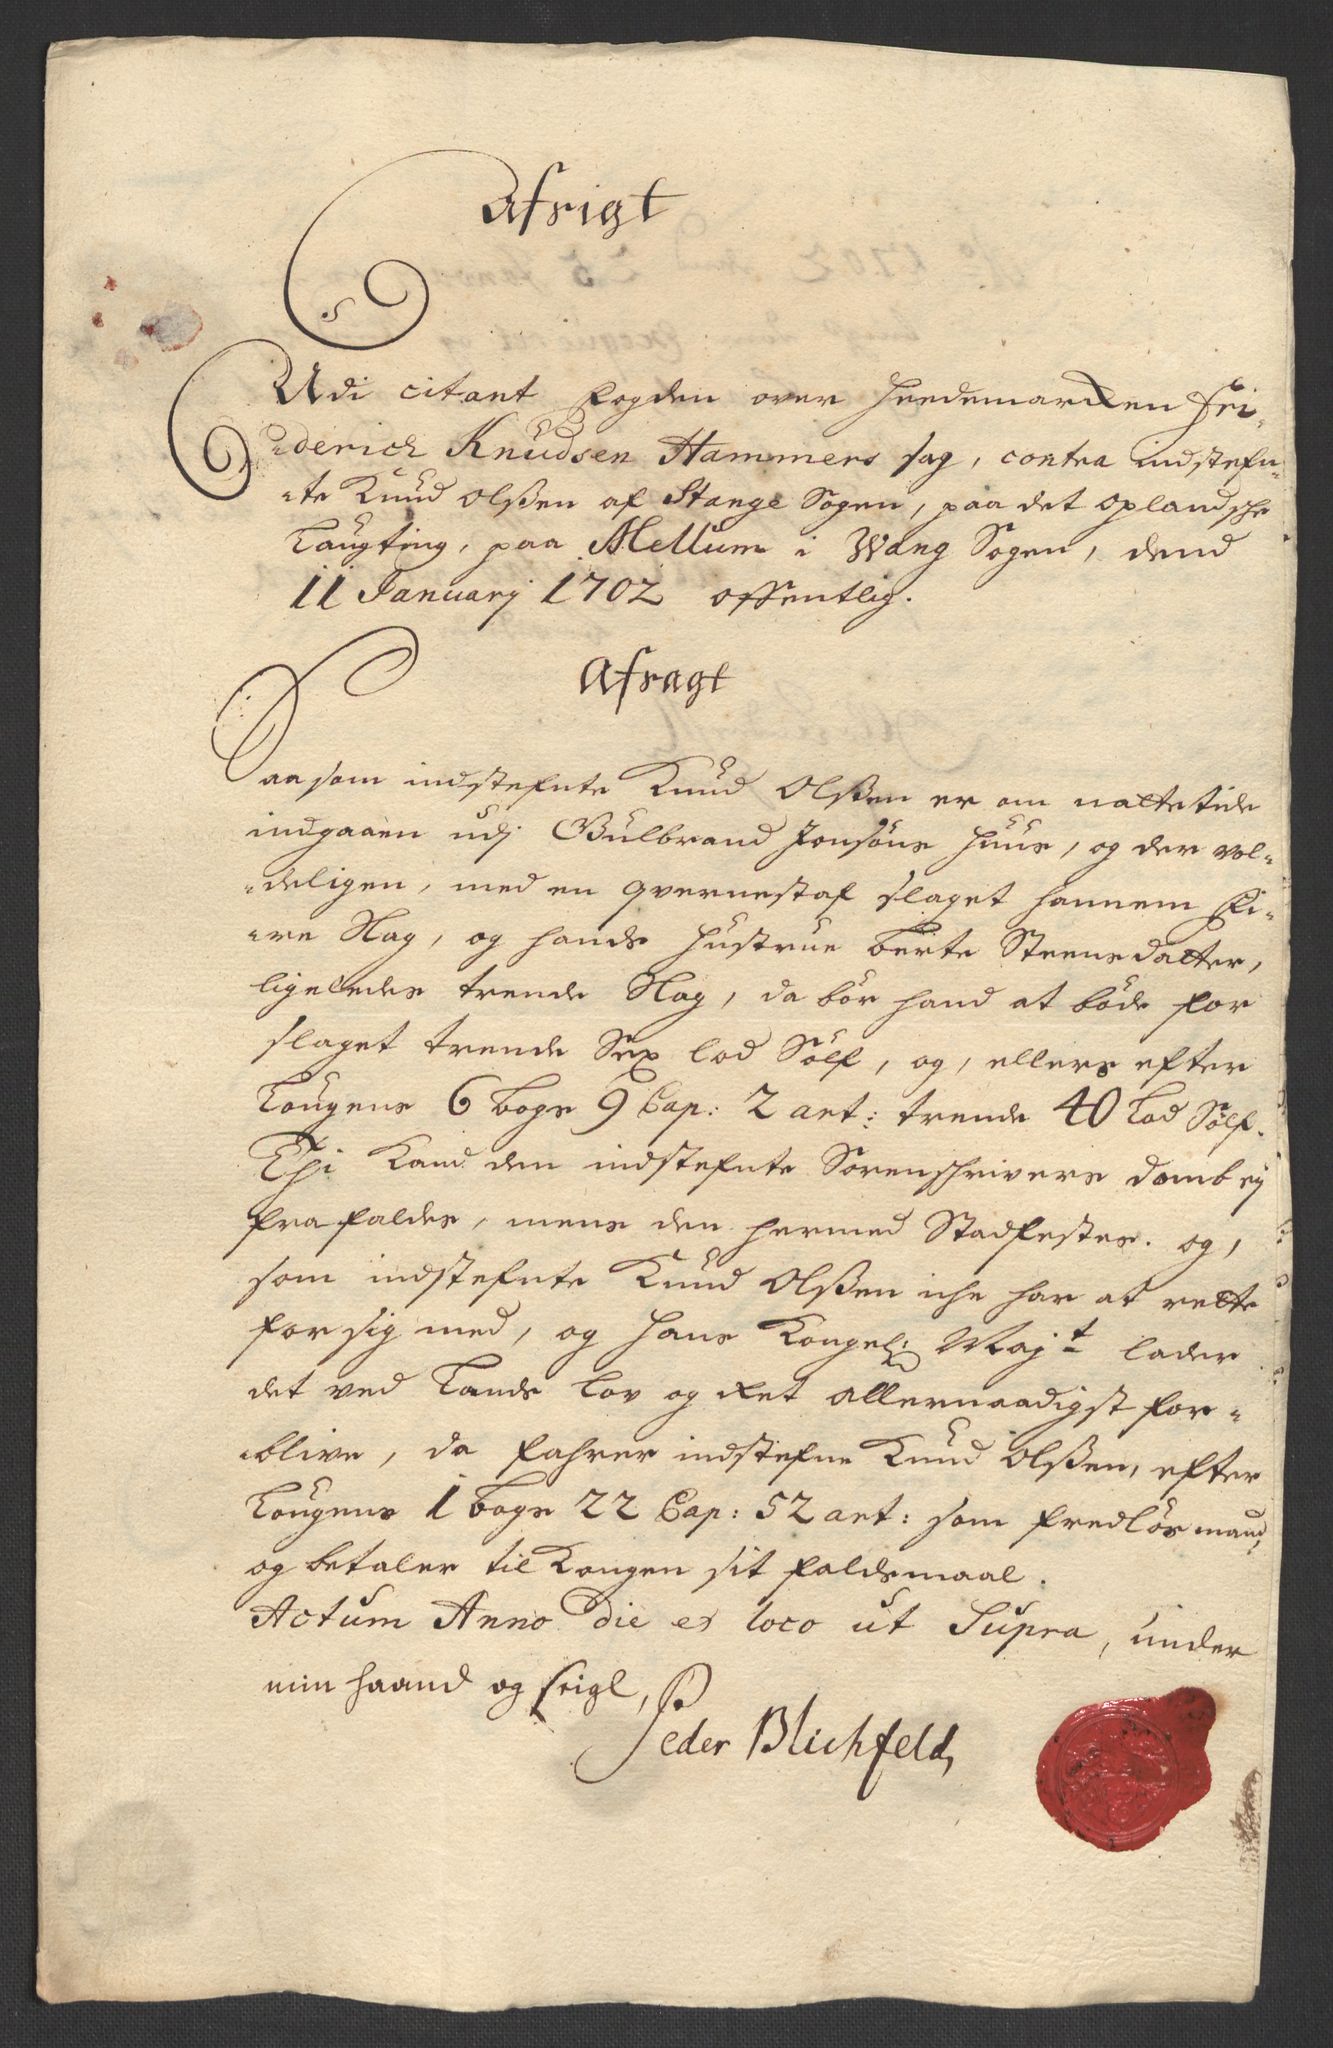 Afsigt
Udi citant fogden over Heedemarcken Fri-
-derich Knudsen Hammers sag, contra indstefn-
-te Knud Olßen af Stange Sogen, paa det oplandsche
Laugting, paa Mellum i Wang Sogen, dend
11 Januarij 1702 offentlig.
Afsagt
Saasom indstefnte Knud Olßen er om nattetide
indgaaen udj Gulbrand Jonsöns Huus, og der vol-
-deligen, med en qvernestaf slaget hannem Fi-
-re Slag, og hands Hustrue Berte Steensdatter,
ligeledes trende Slag, da bör hand at böde for
slaget trende Sex lod Sölf, og, ellers efter
Lougens 6 bogs 9 Cap: 2 art: trende 40 Lod Sölf.
Thi kand den indstefnte Sorenschrivers domb ej
fra faldes, mens den hermed Stadfestes. og,
som indstefnte Knud Olßen iche har at rette
for sig med, og Hans Kongel: Majt lader
det ved Lands lov og Ret allernaadigst for-
-blive, da fahrer indstefne Knud Olßen, efter
Lougens 1 bogs 22 Cap: 52 art: som fredlös mand,
og betaler til Kongen sit faldsmaal.
Actum Anno die et loco ut Supra, under
min haand og seigl,
Peder Blichfeld,